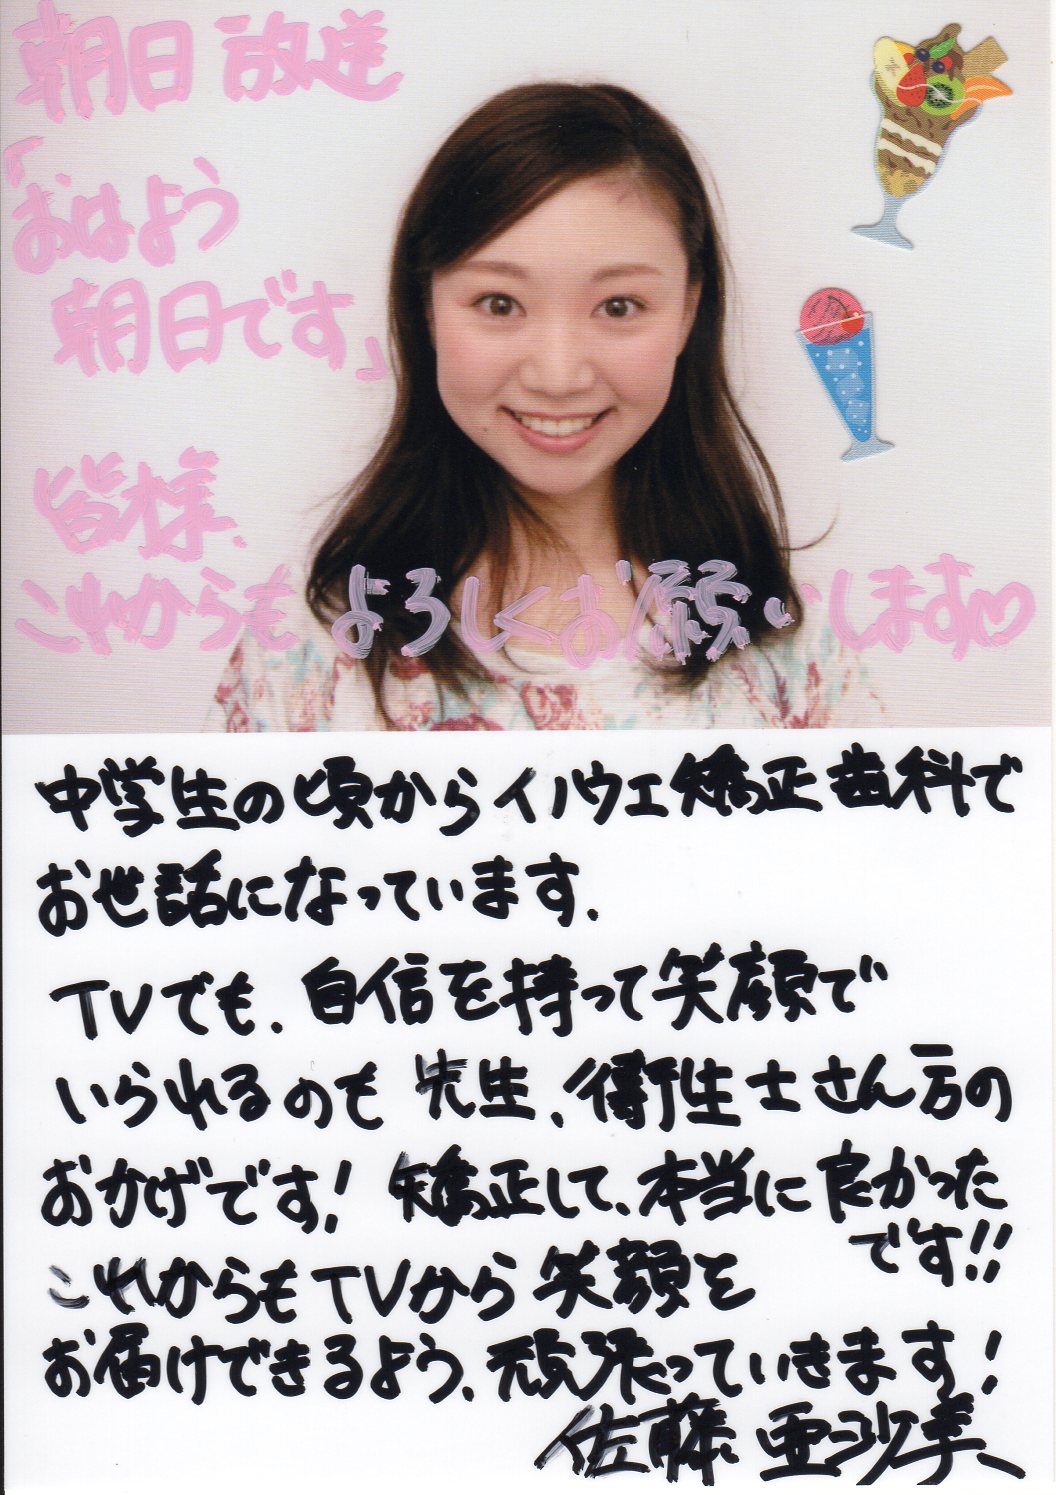 朝日放送
「おはよう
朝日です」
皆様、
これからもよろしくお願いします♡
中学生の頃からイノウエ矯正歯科で
お世話になっています.
TVでも、自信を持って笑顔で
いられるのも 先生、衛生士さん方の
おかげです! 矯正して、本当に良かった
です!!
これからもTVから笑顔を
お届けできるよう、頑張っていきます!
佐藤 亜沙美